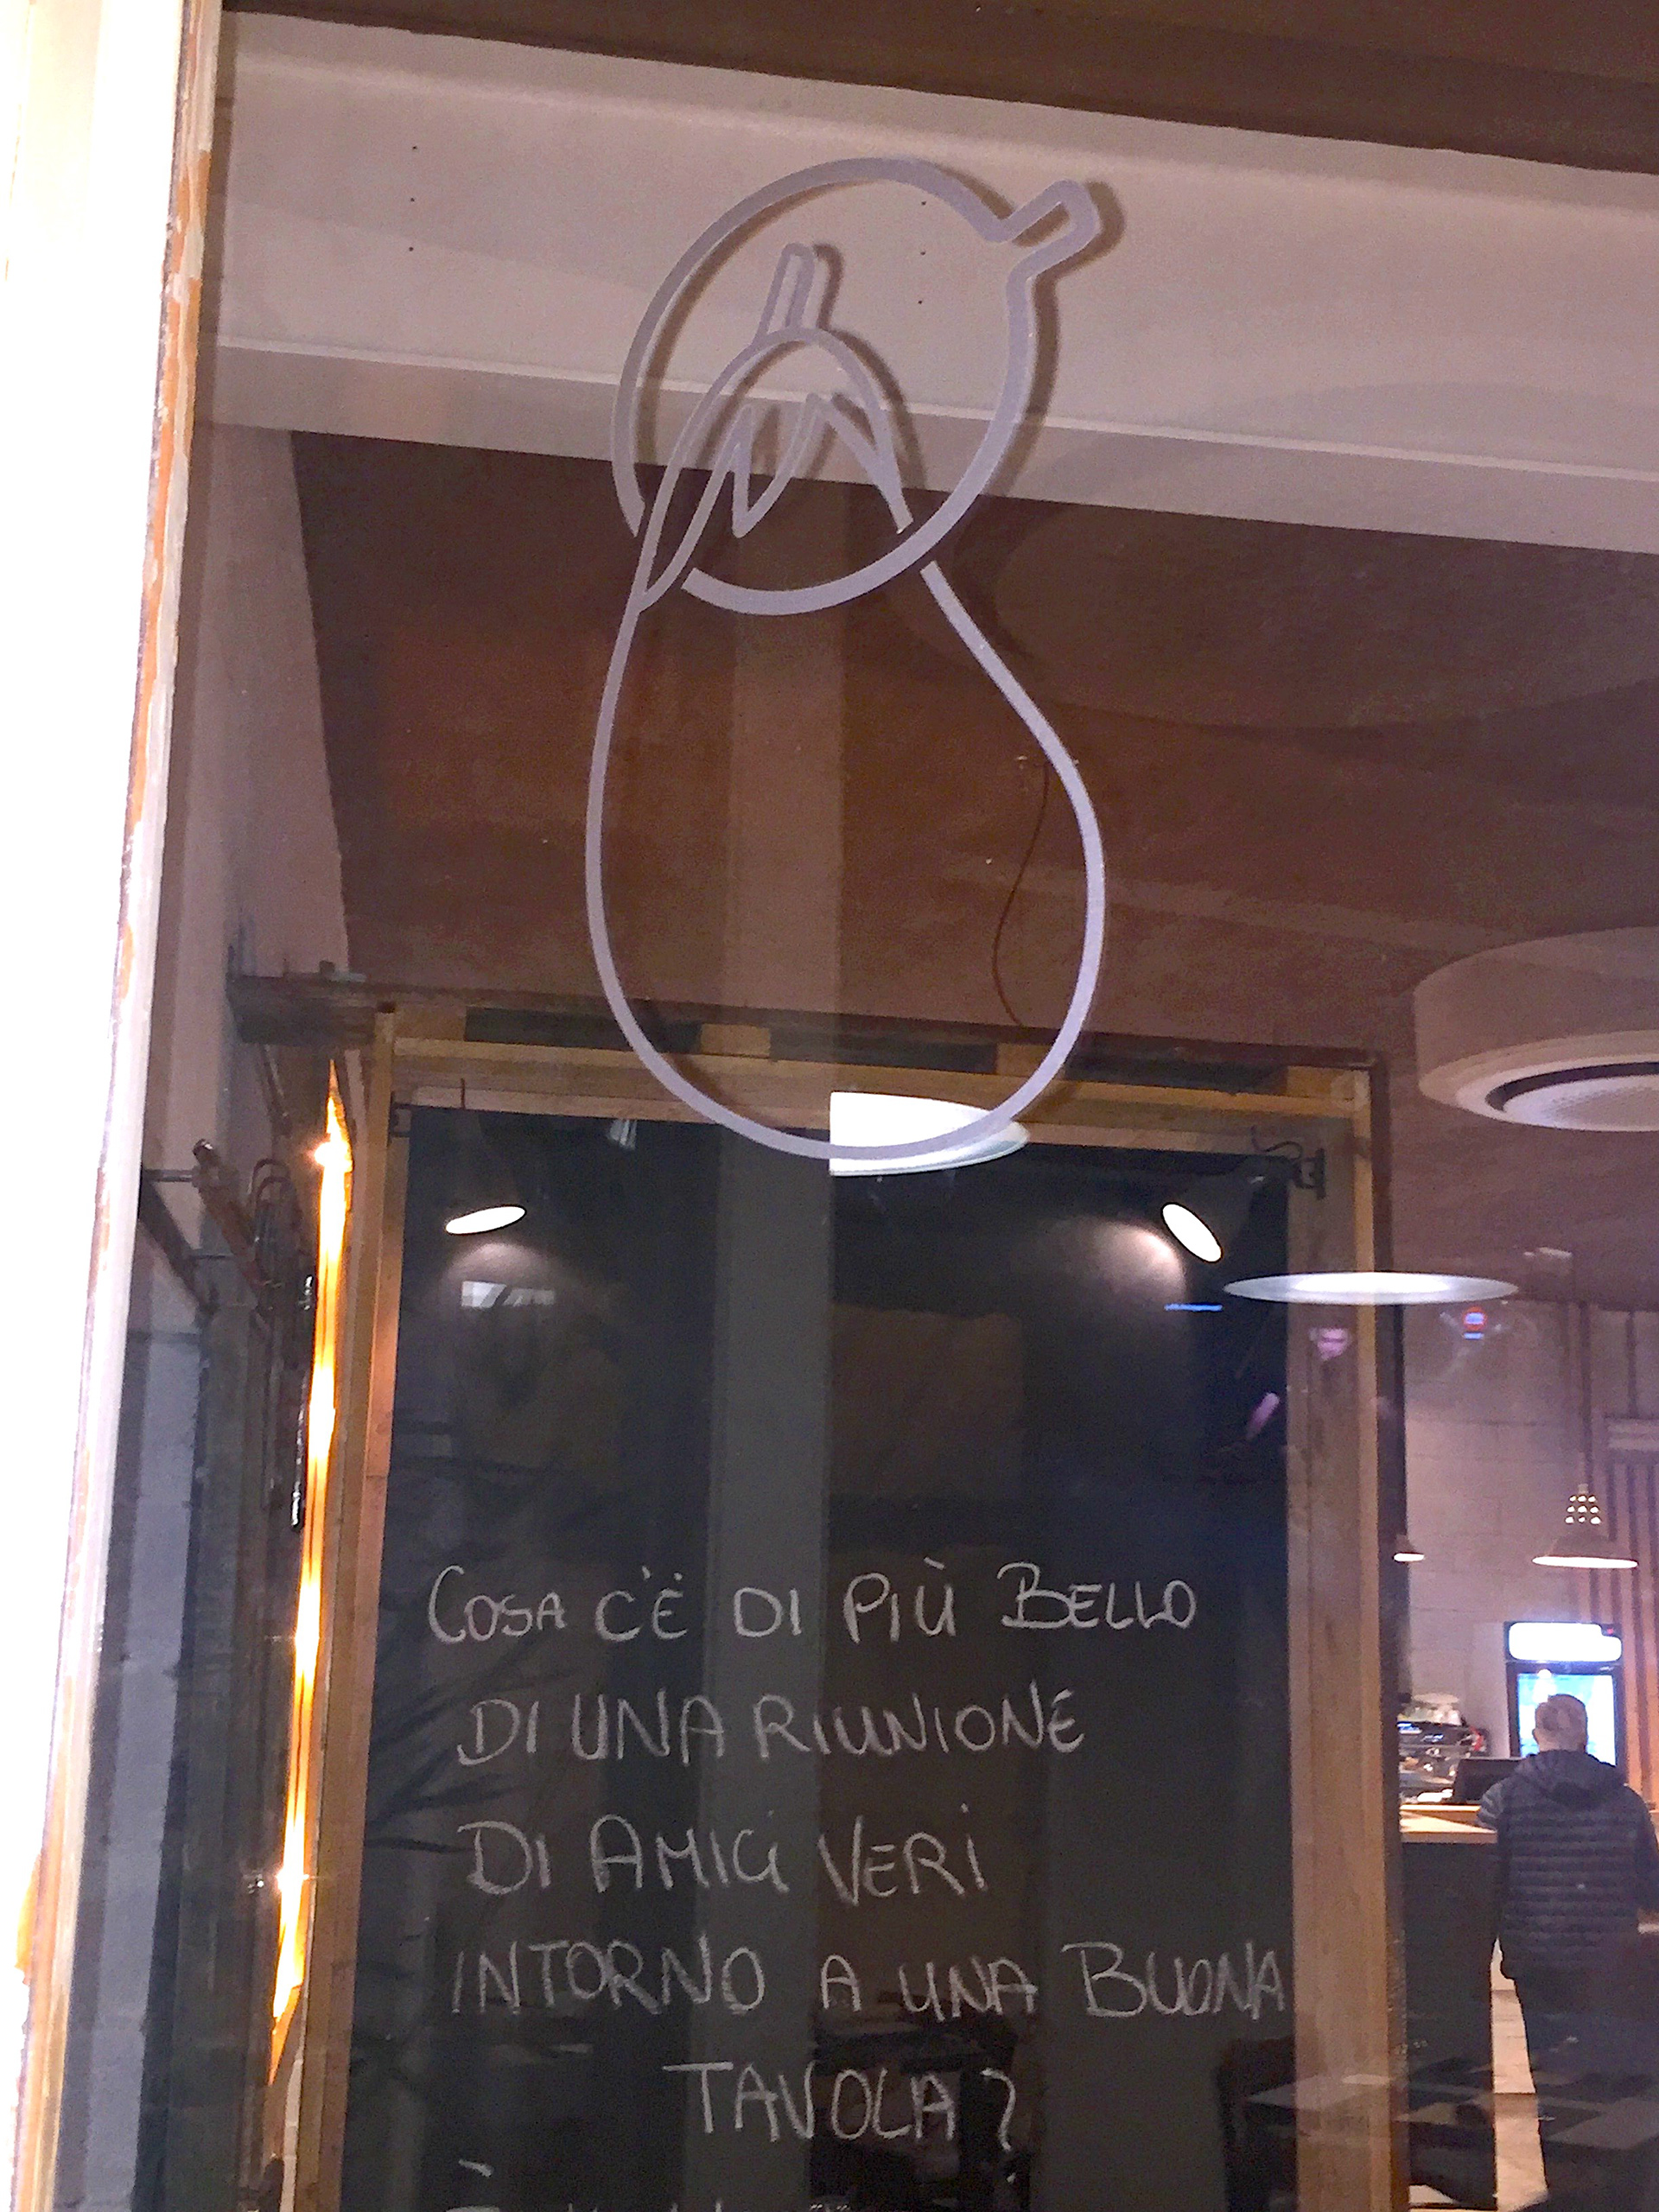 COSA C'È DI PIÙ BELLO
DI UNA RIUNIONE
DI AMICI VERI
INTORNO A UNA BUONA
TAVOLA?